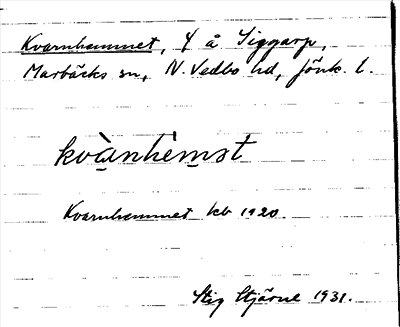 Kvarnhemmet, f å Siggarp,
Marbäcks sn, N. Vedbo hd, Jönk. l.
kvànhèmst
Kvarnhemmet kb 1920.
Stig Stjärne 1931.